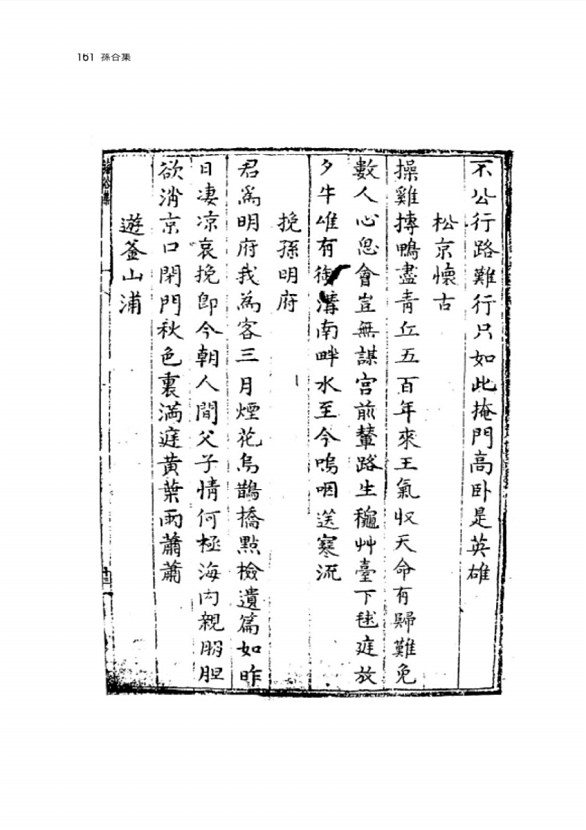 161 孫合集
不公行路難行只如此掩門高卧是英雄
松京懷古
操雞摶鴨盡靑丘五百年來王氣収天命有歸難免
數人心忽會豈無謀宮前輦路生穐艸臺下毬庭放
夕牛唯有御溝南畔水至今嗚咽送寒流
挽孫明府
君爲明府我爲客三月煙花烏鵲橋點檢遺篇如昨
日凄凉哀挽卽今朝人間父子情何極海內親朋胆
欲消京口閉門秋色裏滿庭黃葉雨蕭蕭
遊釜山浦